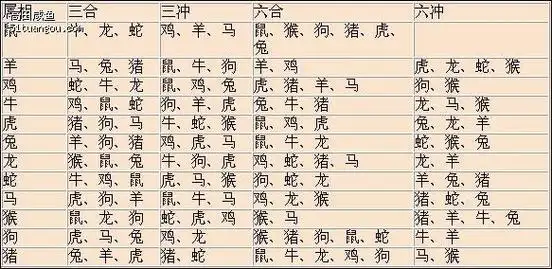 属相 三合 三冲 六合 六冲
高田咸鱼
51tuangou.com
鼠 、龙、蛇 鸡、羊、马 鼠、猴、狗、猪、虎、
兔
羊 马、兔、猪 鼠、牛、狗 羊、鸡 虎、龙、蛇、猴
鸡 蛇、牛、龙 鼠、鸡、兔 虎、猪、羊、马 狗、猴
牛 鸡、鼠、蛇 狗、羊、虎 兔、牛、猪 龙、马、猴
虎 猪、狗、马 牛、蛇、猴 鼠、鸡、虎 兔、龙、羊
兔 羊、狗、猪 鸡、虎、马 鼠、牛、龙 蛇、猴、兔
龙 猴、鼠、兔 牛、狗、虎 鸡、蛇、猪、马 龙、羊
蛇 牛、鸡、鼠 虎、马、猴 狗、蛇、龙 羊、兔、猪
马 虎、狗、羊 鼠、牛、马 鸡、龙、猴 猪、蛇、兔
猴 鼠、龙、狗 蛇、虎、鸡 猴、马 猪、羊、牛、兔
狗 虎、马、兔 鸡、龙 猴、猪、狗、鼠、蛇 牛、羊
猪 兔、羊、虎 猪、蛇 鼠、牛、龙、鸡、狗 马、猴